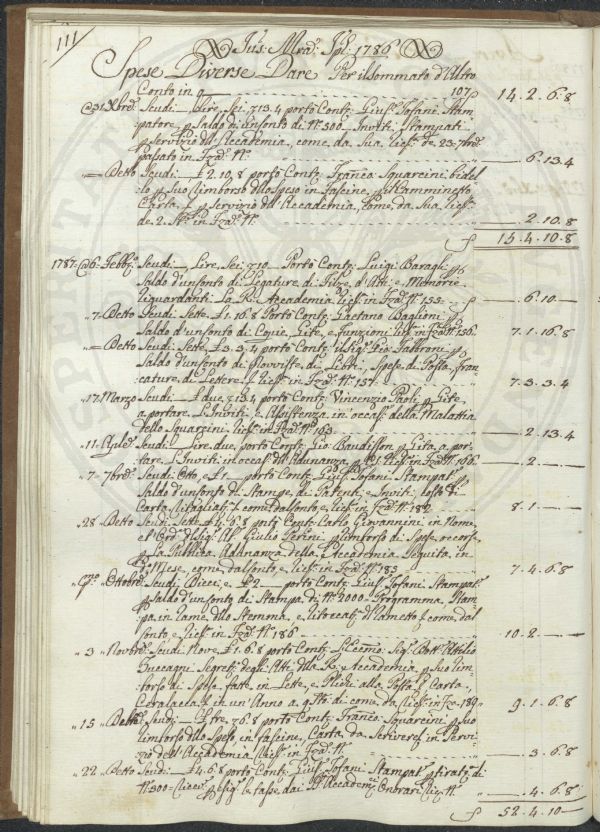 111
Jus: Mra: Jpl: 1786
Spese Diverse Dare Per il Sommato d'Altro
Conto in q 107 14.2.6.8
@31 Xbre Scudi Lire Sei, 713.4 portò Contj: Giusp: Tofani Stam-
patore, p Saldo di un Conto di Nº 300 Inviti Stampati
p servizio dell'Accademia, come da Sua Licf: de 23: 7bre
passato in Fza: Nº 6.13.4
Detto Scudi £2.10.8 portò Contj: Franco: Squarcini bidel-
lo p Suo rimborso dlle Spese in Fascine, p il Camminetto
Carta, p servizio dell'Accademia, Come, da Sua Licf:
de 2. in Fza: Nº 2.10.8
15.4.10.8
1787 @6: Febbr: Scudi Lire, Sei, 10 Portò Contj: Luigi Baragli p
Saldo d'un Conto di Legature, di Filze, d'Atti, e Memorie
riguardanti La R: Accademia Licf: in Fza: Nº 155 6.10
7 Detto Scudi Sette, £1.16.8 Portò Contj: Gaetano Baglioni p
Saldo d'un Conto di Copie, Gite, e Funzioni Licf: in Fza: Nº 156 7.1.16.8
Detto Scudi Sette, £3.3.4 portò Contj: il Sig: Gio: Fabbroni p
Saldo d'un Conto di Provviste, di Libri, Spese di Posta, fran-
cature, di Lettere Licf: in Fza: Nº 157 7.3.3.4
17 Marzo Scudi £ due, 13.4 portò Contj: Vincenzio Paoli p Gite
a portare L'Inviti, e Assistenza in occas: della Malattia
dello Squarcini Licf: in Fza: Nº 163 2.13.4
11 Aple Scudi Lire due, portò Contj: Gio: Baudisson p Gita a por-
tare L'Inviti in occas: dll'Adunanza Licf: in Fza: Nº 166 2
7 7bre Scudi Otto, e £1 portò Contj: Giusp: Tofani Stampat:
Saldo d'un Conto di Stampe, di Patenti, e Inviti, costo di
Carta Ritagliat: come dal Conto, e Licf: in Fza: Nº 182 8.1
28 Detto Scudi Sette, £4.6.8 portò Contj: Carlo Giovannini in Nome,
ed Ord: dl Sig: Giulio Perini p rimborso di Spese, occorse
p La Pubblica Adunanza della Accademia Seguita in
Mese, come dal Conto, e Licf: in Fza: Nº 183 7.4.6.8
pmo: Ottobre Scudi Dieci, e £2 portò Contj: Giusp: Tofani Stampat:
p Saldo d'un Conto di Stampa, di Nº 2000 Programma, Stam-
pa in Rame dllo Stemma, e Ritoccat: come dal
Conto, e Licf: in Fza: Nº 186 10.2
3 Novbre Scudi Nove, £1.6.8 portò Contj: L'Eccmo: Sig: Dott: Attilio
Zuccagni Segret: degli Atti dlla R: Accademia, p Suo rim-
borso di Spese, fatte in Lette, e Plichi alla Posta, Carta,
Ceralacca, in un'Anno a qsto dì come da Licf: in Fza 189 9.1.6.8
15 Detto Scudi £tre, 6.8 portò Contj: Franco: Squarcini p Suo
rimborso dlle Spese in Fascine, Carta, da Scriveref in Servi-
zio dell'Accademia Licf: in Fza: Nº 3.6.8
22 Detto Scudi £4.6.8 portò Contj: Giusp: Tofani Stampat: p tirat: di
Nº 300 Ricev: p esig: le tasse, dai SS Accadem: Onorari Licf: Nº 4.6.8
52.4.10